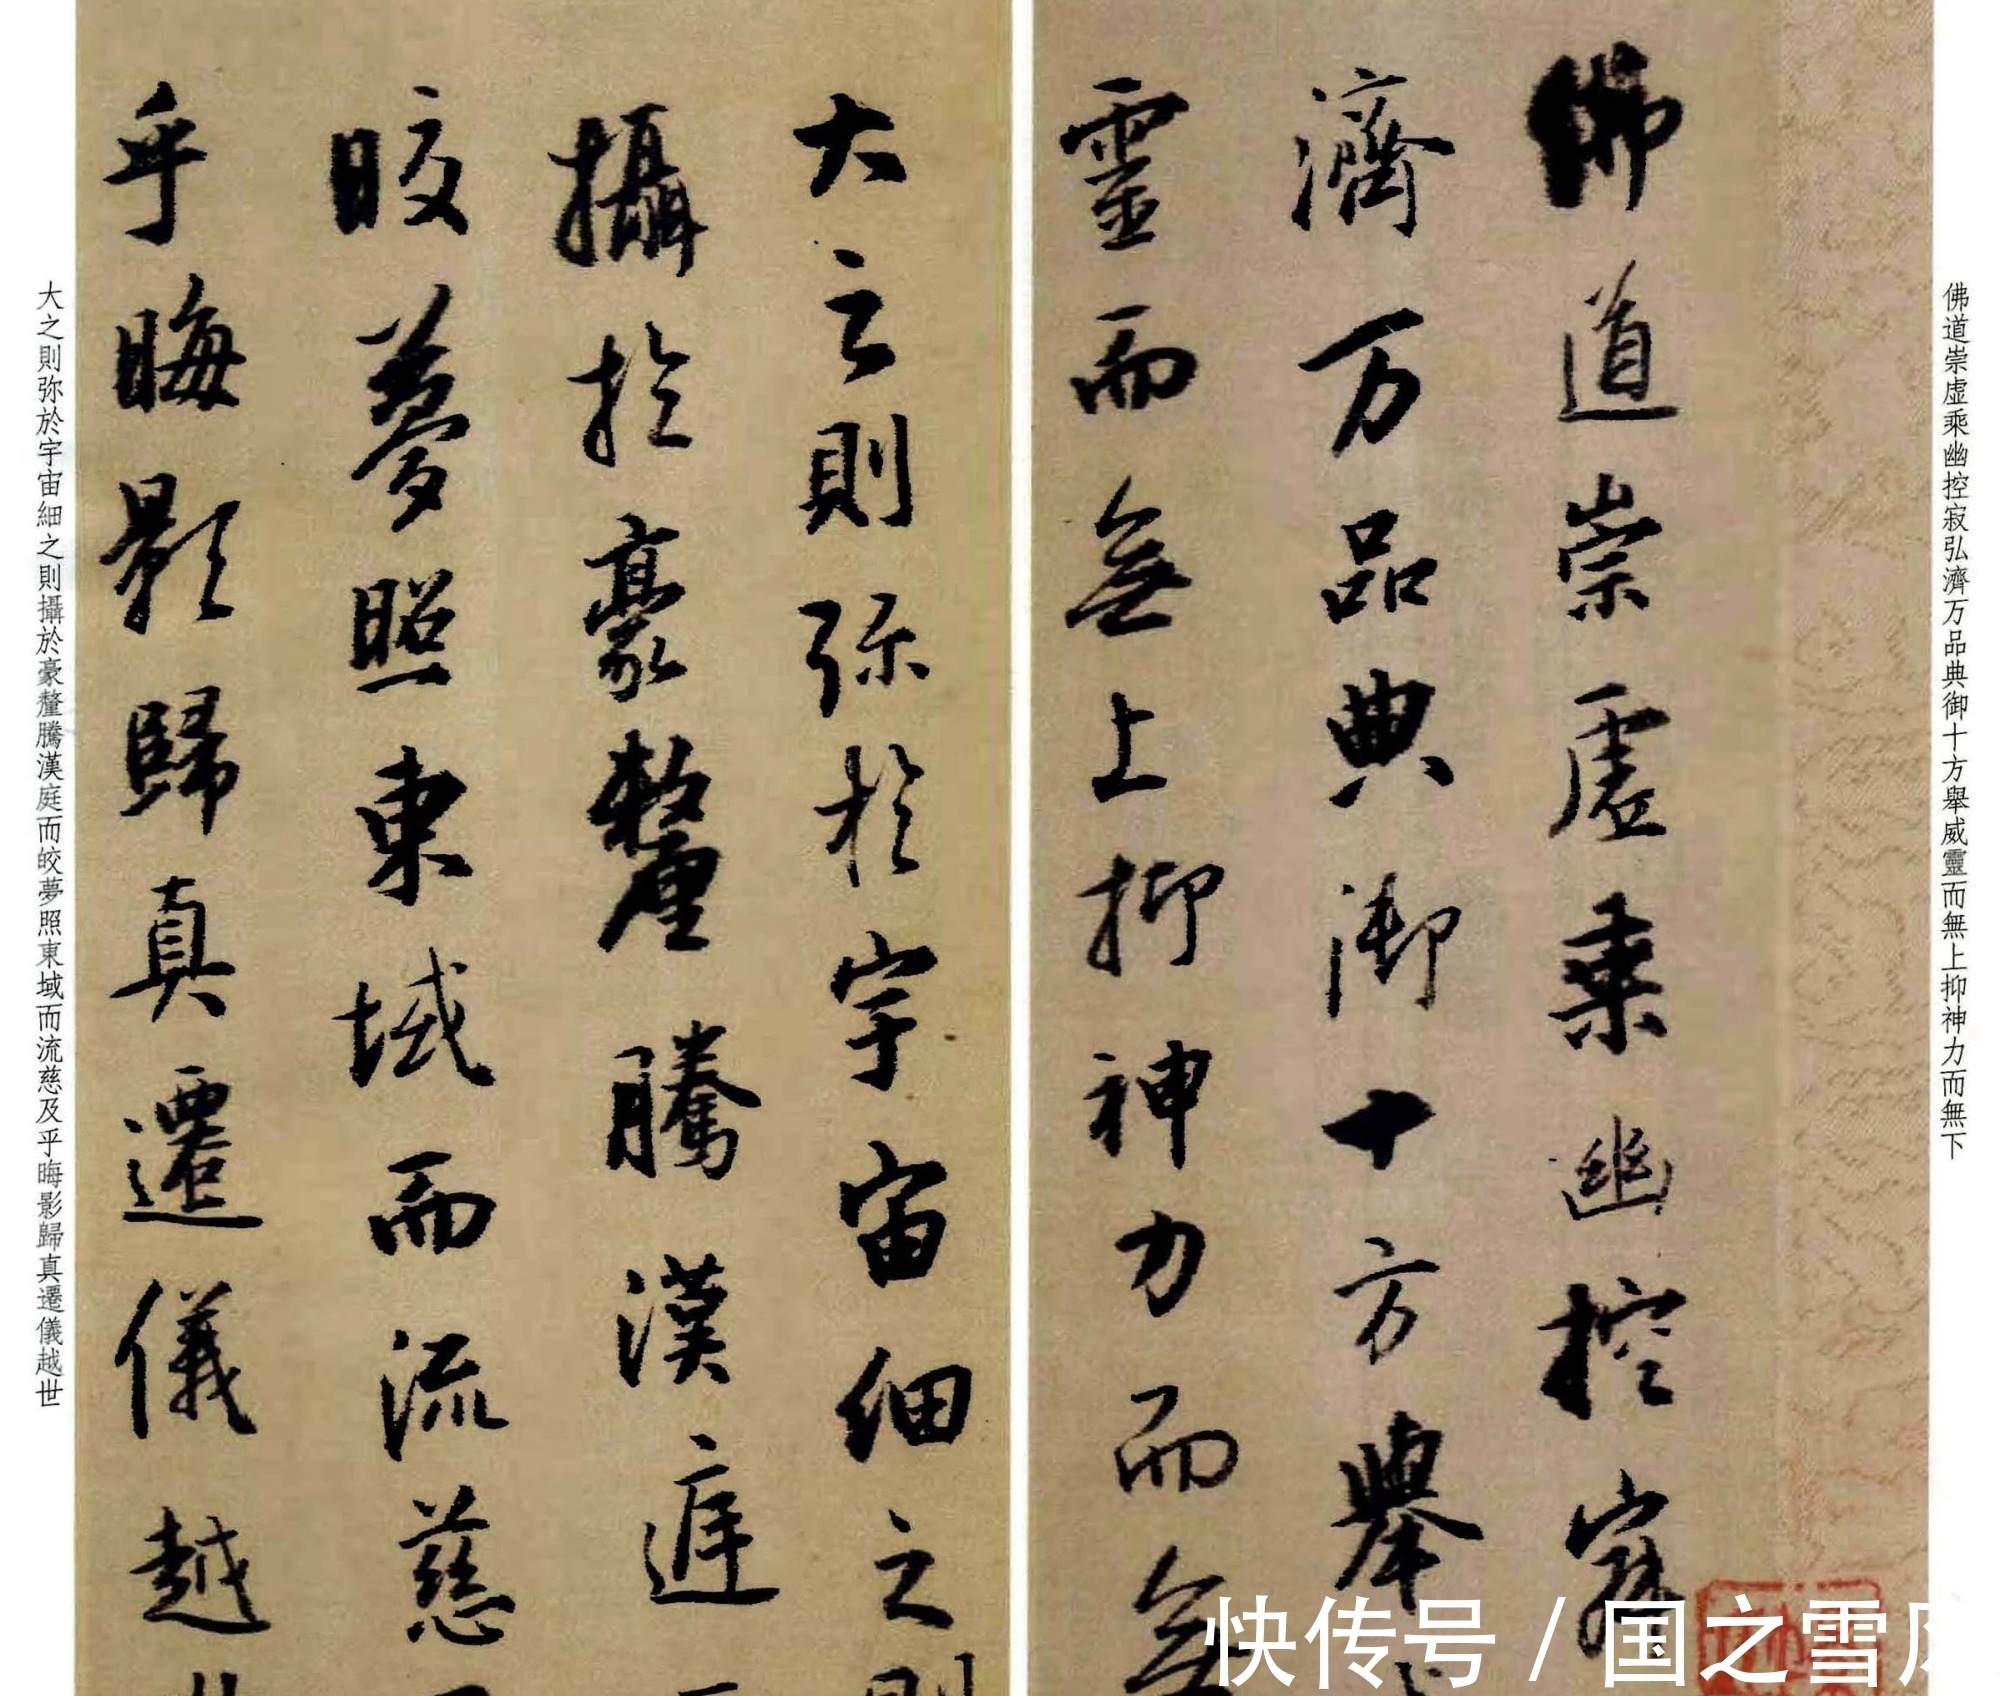 佛道崇虚乘幽控寂弘濟万品典御十方舉威靈而無上抑神力而無下
佛道崇虛乘幽控寂
濟万品典御十方舉
靈而無上抑神力而無
大之則弥於宇宙細之則
攝於豪釐騰漢庭
皎夢照東域而流慈
乎晦影歸真遷儀越
大之則弥於宇宙細之則攝於豪釐騰漢庭而皎夢照東域而流慈及乎晦影歸真遷儀越世
快传号/国之雪